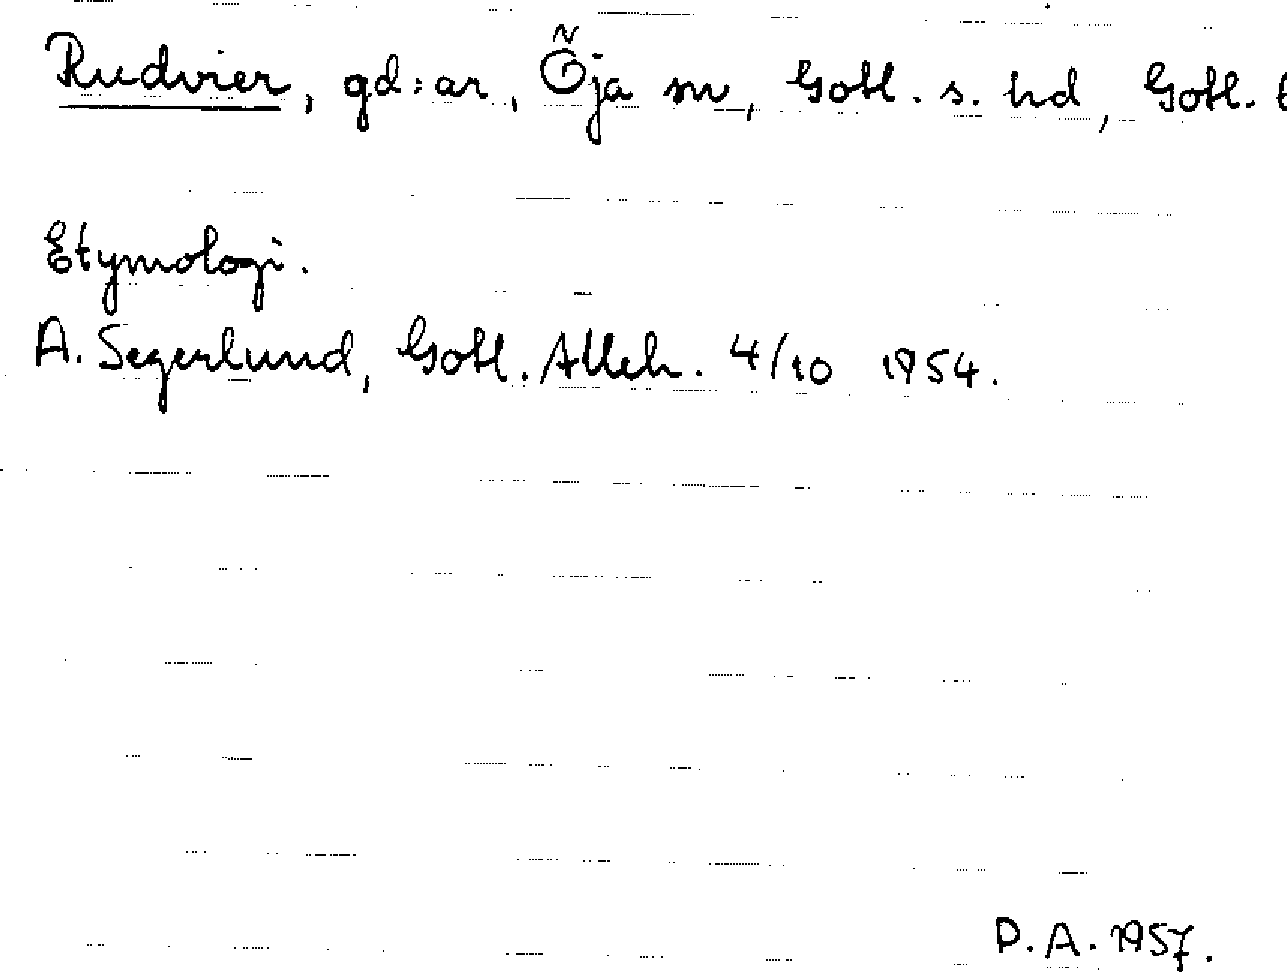 Rudvier, gd:ar, Öja sn, Gotl. s. hd, Gotl.
Etymologi.
A. Segerlund, Gotl. Alleh. 4/10 1954.
D.A. 1957.